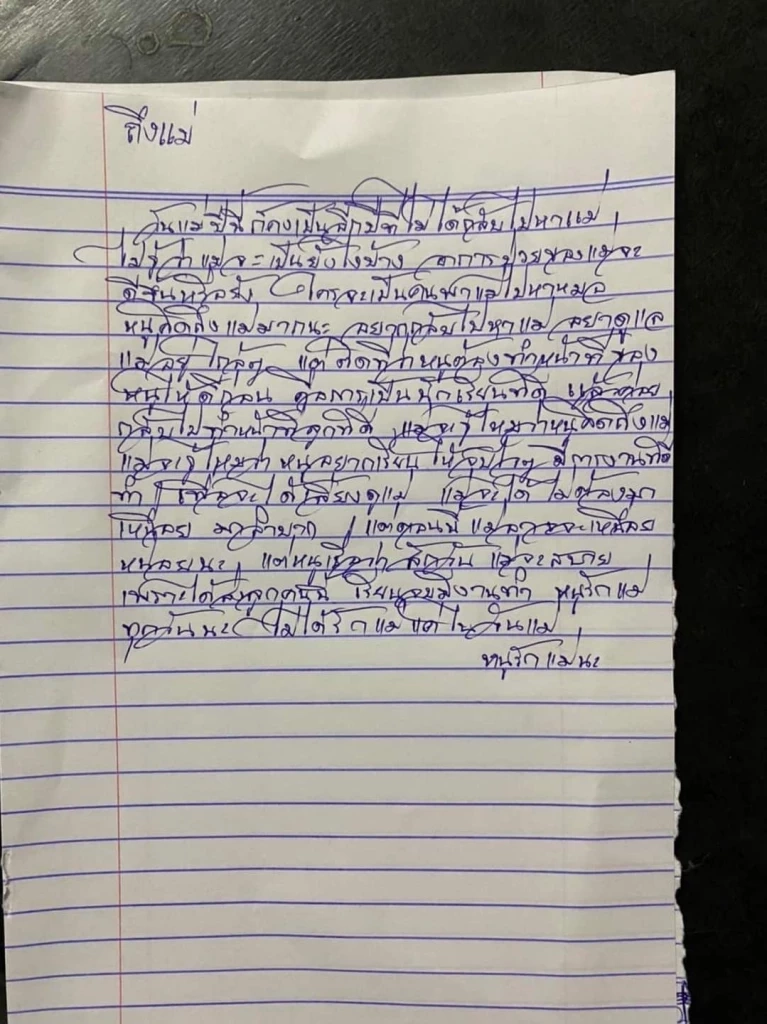 ถึงแม่
วันแม่ปีนี้ ก็คงเป็นอีกปีที่ไม่ได้กลับไปหาแม่
ไม่รู้ว่าแม่จะเป็นยังไงบ้าง อาการป่วยของแม่จะ
ดีขึ้นหรือยัง ใครจะเป็นคนพาแม่ไปหาหมอ
หนูคิดถึงแม่มากนะ อยากกลับไปหาแม่ อยากดูแล
แม่อยู่ใกล้ๆ แต่ติดที่ว่าหนูต้องทำหน้าที่ของ
หนูให้ดีก่อน คือการเป็นนักเรียนที่ดี แล้วค่อย
กลับไปทำหน้าที่ลูกที่ดี แม่จะรู้ไหมว่าหนูคิดถึงแม่
แม่จะรู้ไหมว่า หนูอยากเรียนให้จบไวๆ มีการงานที่ดี
ทำ เพื่อจะได้เลี้ยงดูแม่ แม่จะได้ไม่ต้องมา
เหนื่อย มาลำบาก แต่ตอนนี้แม่อาจจะเหนื่อย
หน่อยนะ แต่หนูเชื่อว่า สักวัน แม่จะสบาย
เพราะได้ลูกคนนี้ เรียนจบมีงานทำ หนูรักแม่
ทุกวันนะ ไม่ได้รักแม่แค่ในวันแม่
หนูรักแม่นะ